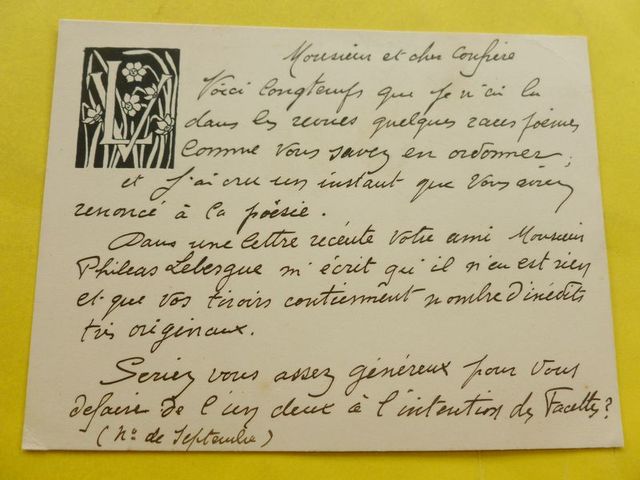 Monsieur et cher Confrère
LV
Voici longtemps que je n'ai lu
dans les revues quelques rares poèmes
comme vous savez en ordonner,
et j'ai cru un instant que vous aviez
renoncé à la poësie.
Dans une lettre récente votre ami Monsieur
Phileas Lebesgue m'écrit qu'il n'en est rien
et que vos tiroirs contiennent nombre d'inédits
très originaux.
Seriez vous assez généreux pour vous
défaire de l'un deux à l'intention des Facettes?
(No de Septembre)